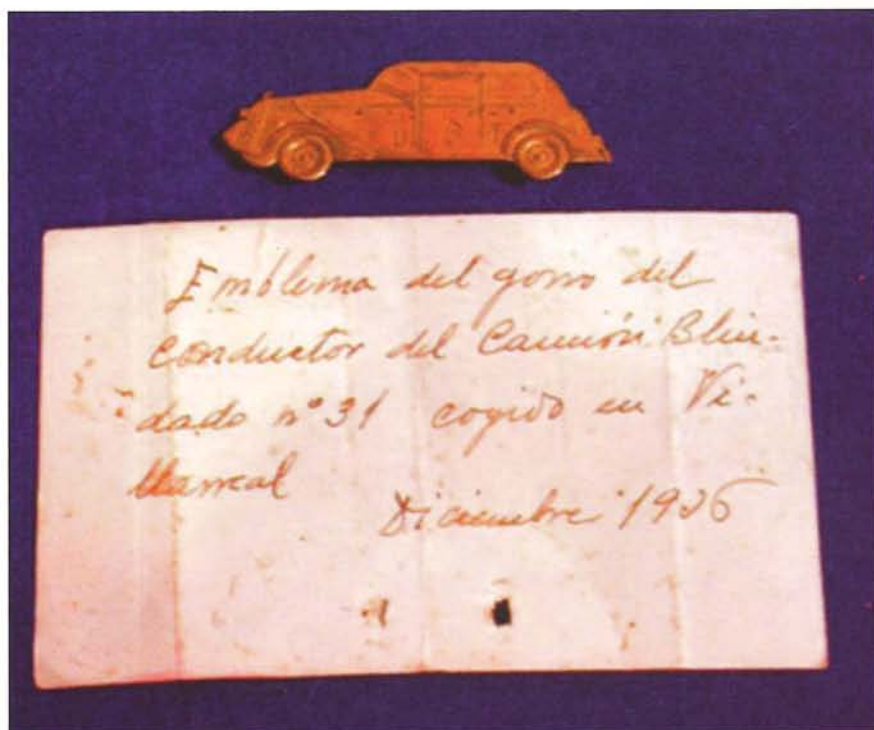 Emblema del gorro del
conductor del Camión Blin-
dado nº 31 cogido en Vi-
llarreal
Diciembre 1936